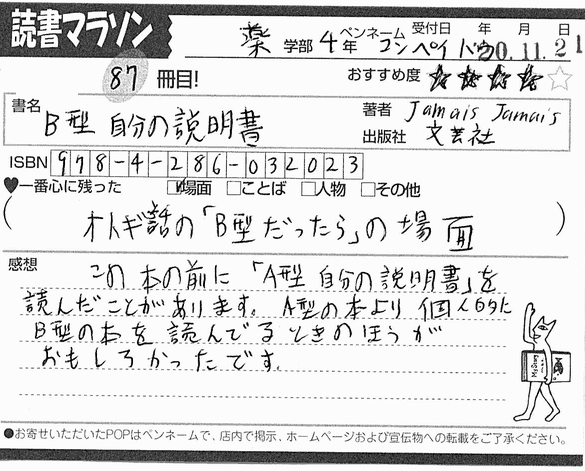 読書マラソン
薬 学部 4 年 ペンネーム コンペイトウ 受付日 年 月 日 20.11.21
87 冊目! おすすめ度 ★★★★☆
書名 B型 自分の説明書 著者 Jamais Jamais
出版社 文芸社
ISBN 978-4-286-032023
♥一番心に残った ☑場面 □ことば □人物 □その他
(オトギ話の「B型だったら」の場面)
感想 この本の前に「A型 自分の説明書」を
読んだことがあります。A型の本より個人的に
B型の本を読んでるときのほうが
おもしろかったです。
●お寄せいただいたPOPはペンネームで、店内で掲示、ホームページおよび宣伝物への転載をご了承ください。